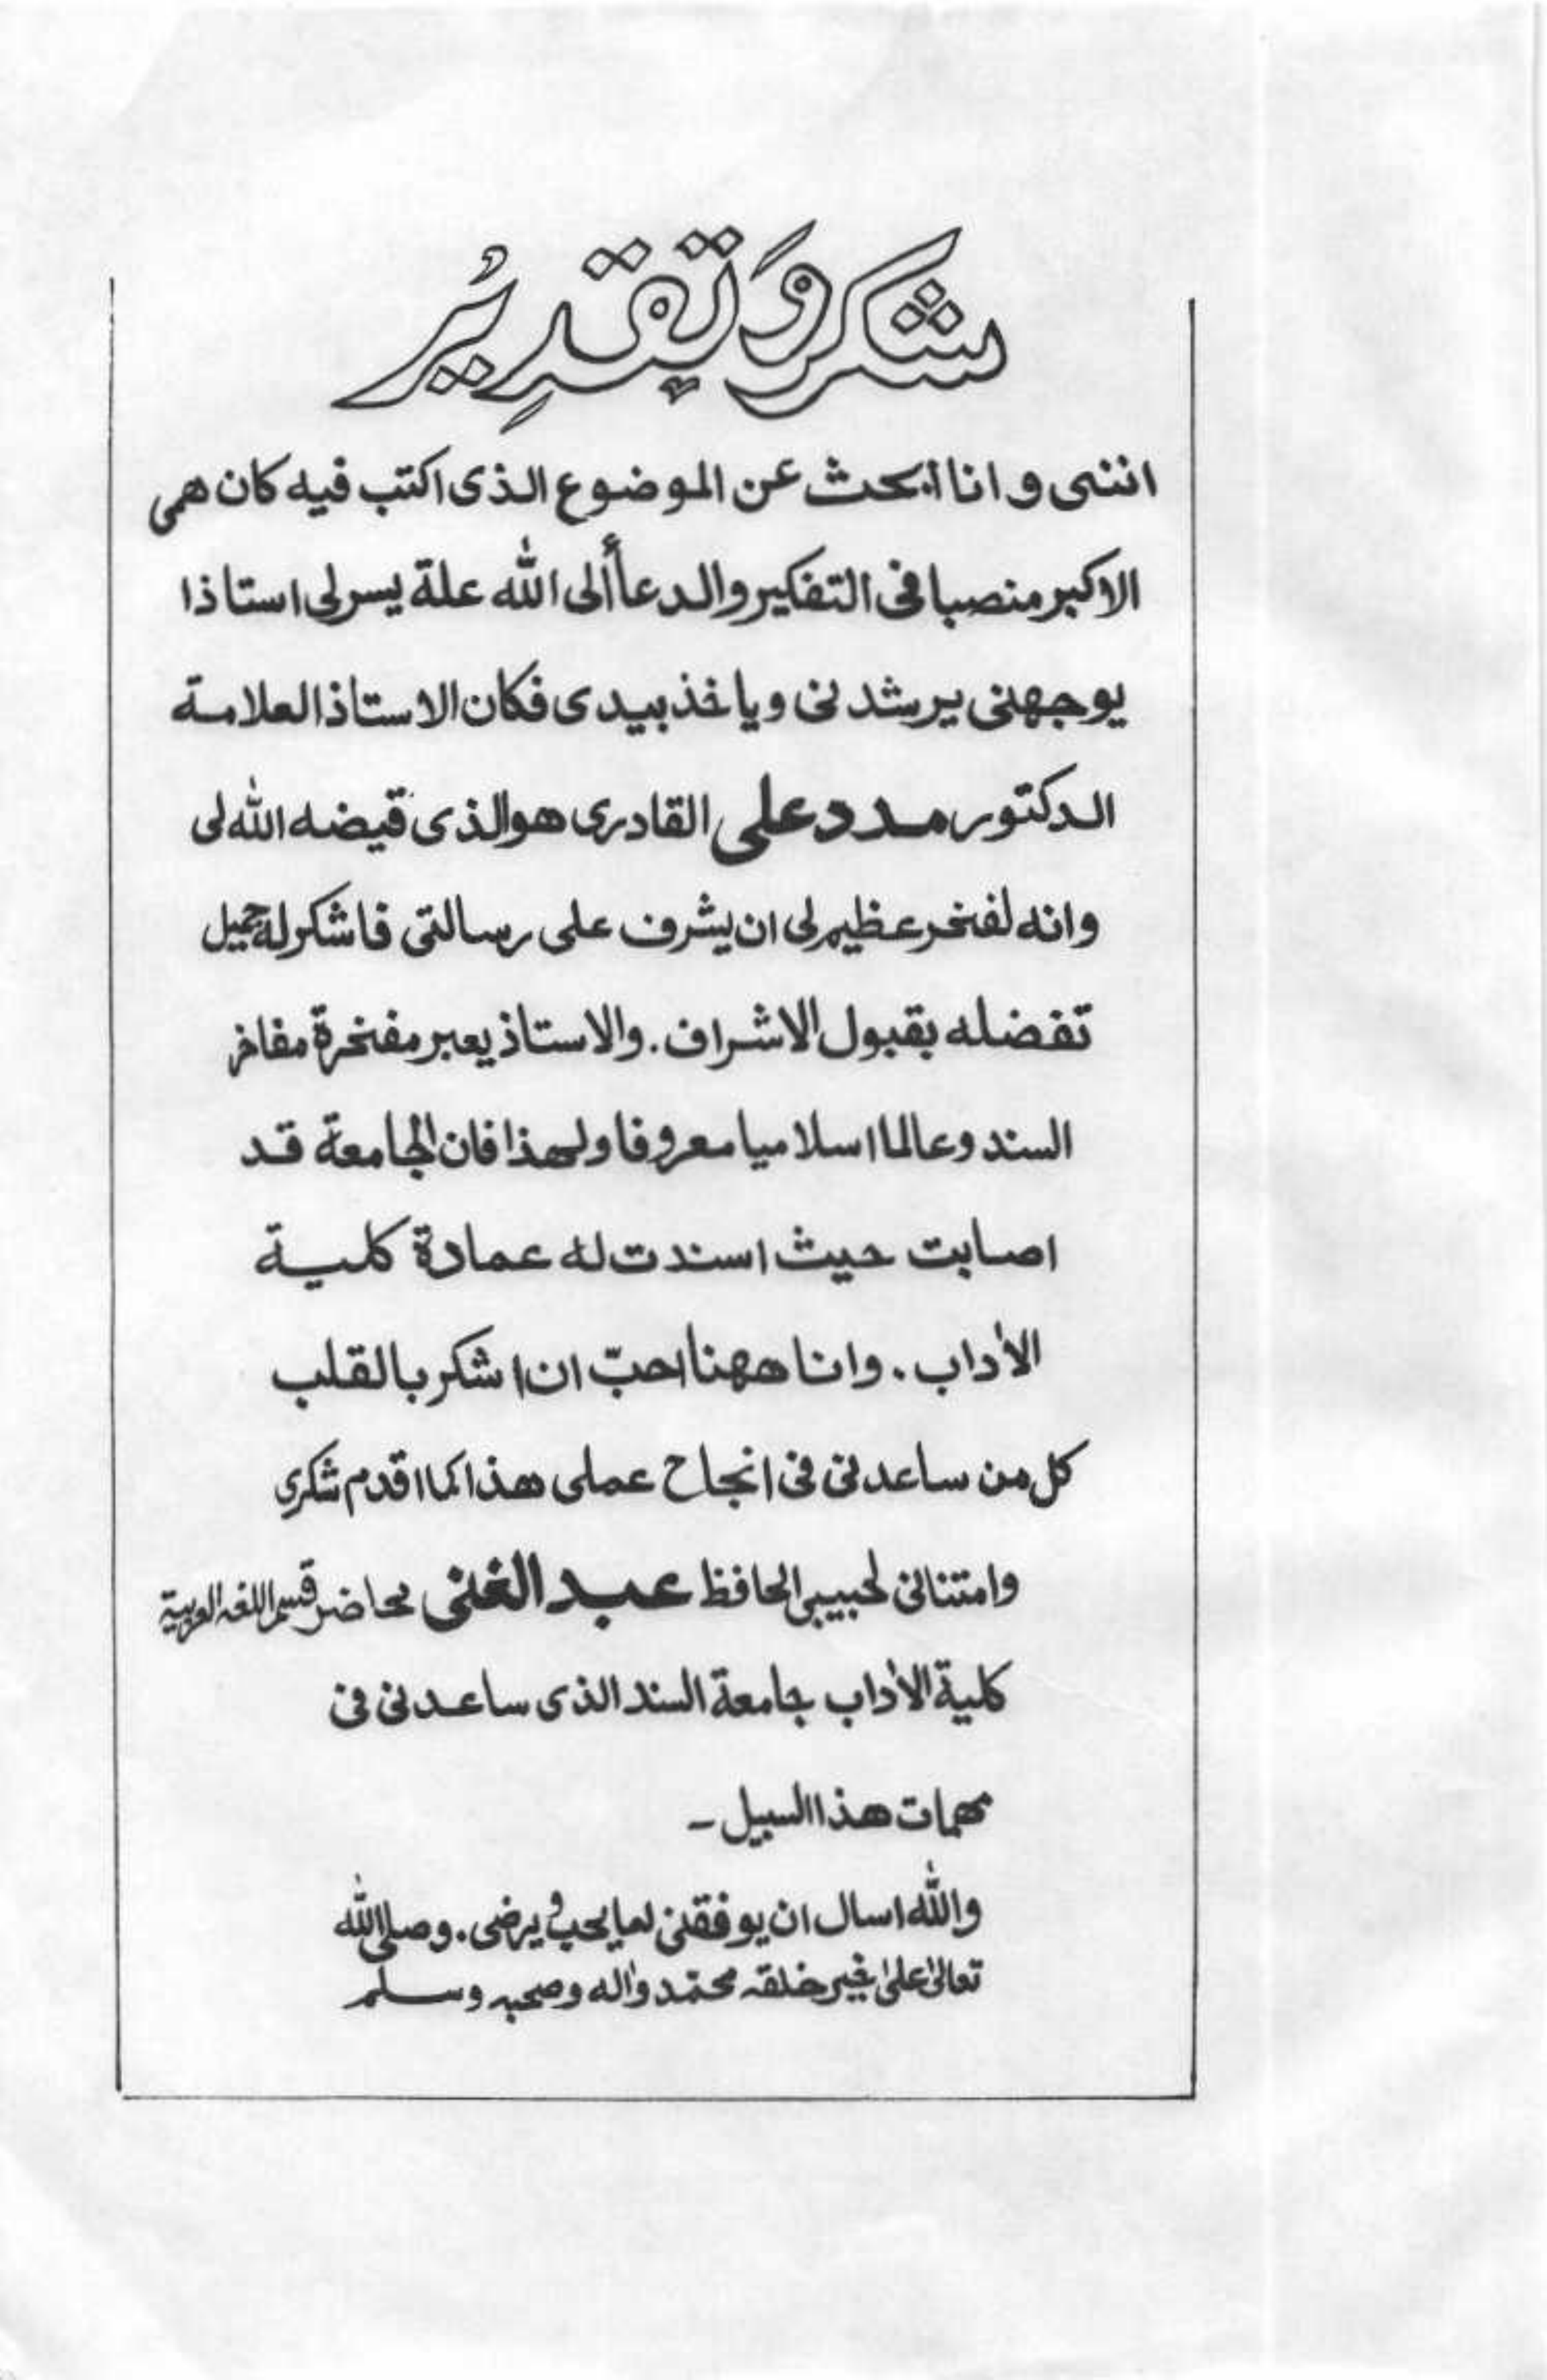 شكر وَتقدِيُر
اننى وانا أبحث عن الموضوع الذى اكتب فيه كان همى
الاكبر منصبا فى التفكير والدعاأ الى الله علة يسر لى استاذا
يوجهنى يرشدنى وياخذ بيدى فكان الاستاذ العلامة
الدكتور مدد على القادرى هوالذى قيضه الله لى
وانه لفخر عظيم لى ان يشرف على رسالتى فاشكر له جميل
تفضله بقبول الاشراف. والاستاذ يعبر مفخرة مفاخر
السند وعالما اسلاميا معروفا ولهذا فان الجامعة قد
اصابت حيث اسندت له عمادة كلية
الأداب. وانا ههنا احبّ ان اشكر بالقلب
كل من ساعدنى فى انجاح عملى هذا كما اقدم شكرى
وامتنانى لحبيبى الحافظ عبد الغنى محاضر قسم اللغه العربية
كلية الأداب جامعة السند الذى ساعدنى فى
مهمات هذا السبيل ـ
والله اسال ان يوفقنى لما يحب و يرضى. وصلى الله
تعالىٰ علىٰ خير خلقه محمّد واٰله وصحبه وسلم